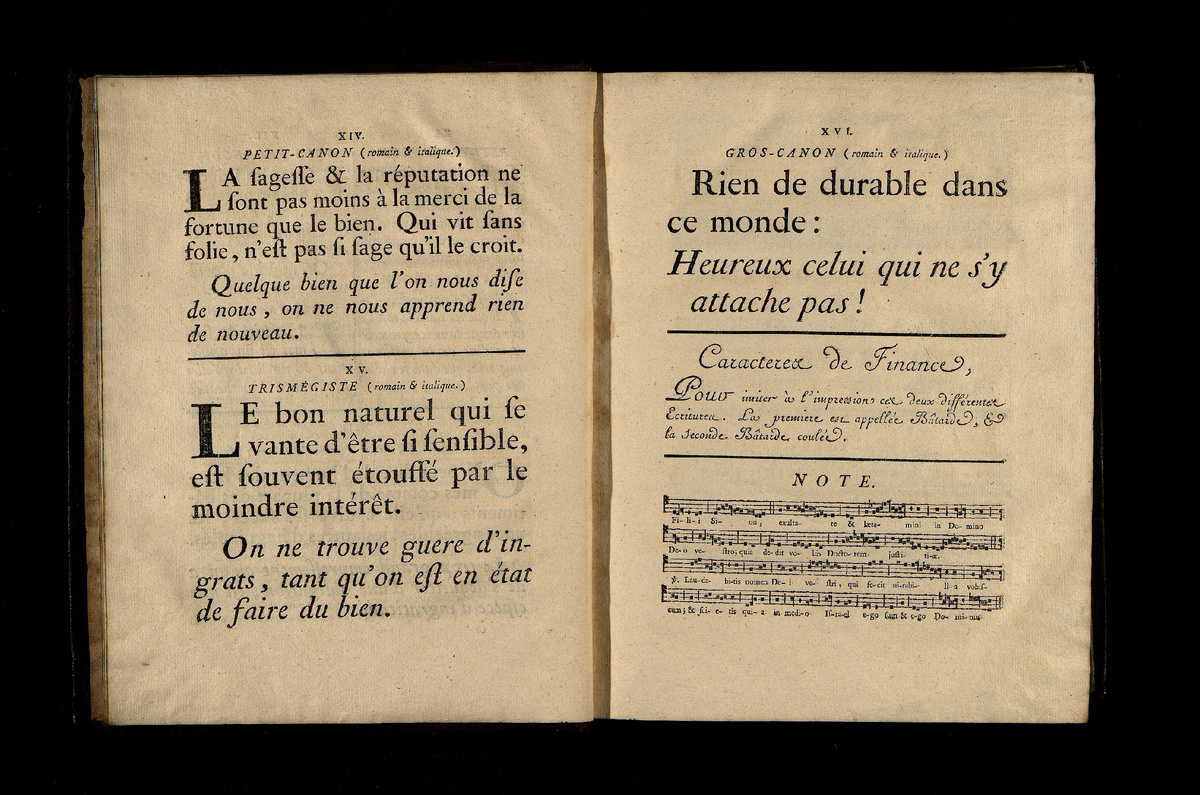 XIV.
PETIT-CANON (romain & italique.)
LA ſageſſe & la réputation ne
ſont pas moins à la merci de la
fortune que le bien. Qui vit ſans
folie, n'eſt pas ſi ſage qu'il le croit.
Quelque bien que l'on nous diſe
de nous, on ne nous apprend rien
de nouveau.
XV.
TRISMÉGISTE (romain & italique.)
LE bon naturel qui ſe
vante d'être ſi ſenſible,
eſt ſouvent étouffé par le
moindre intérêt.
On ne trouve guere d'in-
grats, tant qu'on eſt en état
de faire du bien.
XVI.
GROS-CANON (romain & italique.)
Rien de durable dans
ce monde:
Heureux celui qui ne s'y
attache pas!
Caracteres de Finance,
Pour imiter à l'impression ces deux différentes
Ecritures. La premiere est appellée Bâtarde, &
la seconde Bâtarde coulée.
NOTE.
Fi-li-i Si- on, exulta- te & læta- mini in Do- mino
De-o ve- ſtro; quia de-dit vo- bis Docto-rem juſti- tiæ.
℣. Lau-da- bi-tis nomen De-i ve- ſtri, qui fe-cit mi-rabi- li-a vobiſ-
cum; & ſci-e-tis qui-a in medi-o Iſ-ra-el e-go ſum & e-go Do-mi-nus